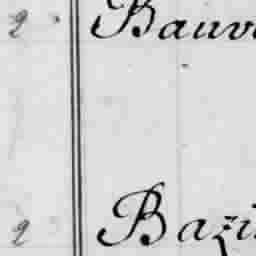 2 Bauv
2 Bazi